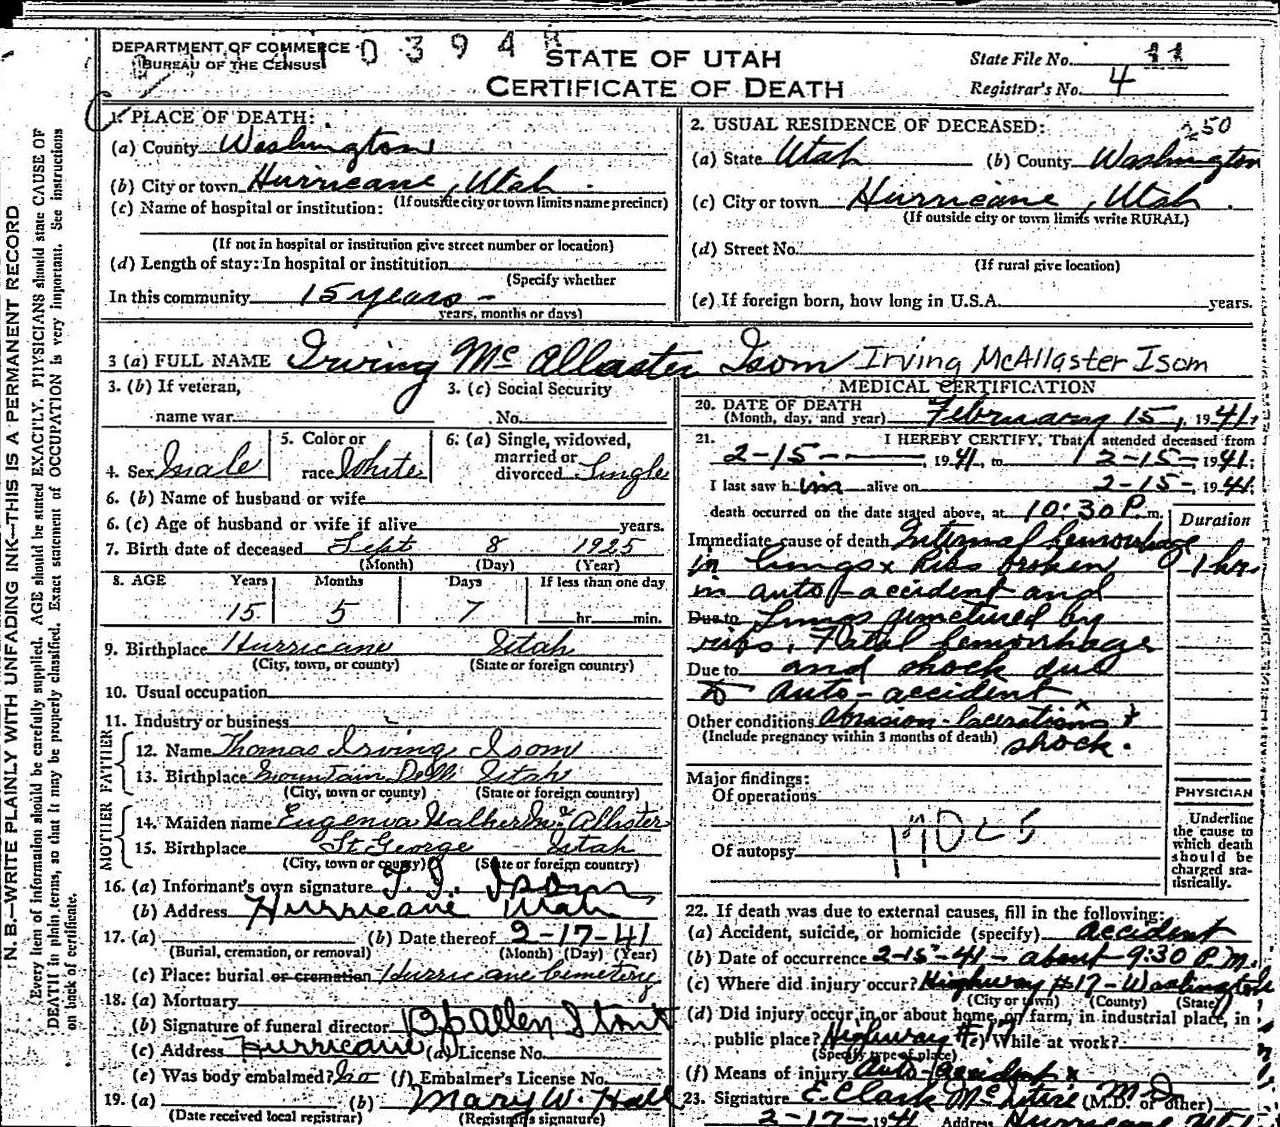 DEPARTMENT OF COMMERCE
BUREAU OF THE CENSUS
0 3 9 4
STATE OF UTAH
CERTIFICATE OF DEATH
State File No. 11
Registrar's No. 4
N. B.—WRITE PLAINLY WITH UNFADING INK—THIS IS A PERMANENT RECORD
Every item of information should be carefully supplied. AGE should be stated EXACTLY. PHYSICIANS should state CAUSE OF
DEATH in plain terms, so that it may be properly classified. Exact statement of OCCUPATION is very important. See instructions
on back of certificate.
1. PLACE OF DEATH:
(a) County Washington
(b) City or town Hurricane, Utah
(If outside city or town limits name precinct)
(c) Name of hospital or institution:
(If not in hospital or institution give street number or location)
(d) Length of stay: In hospital or institution
(Specify whether
In this community 15 years -
years, months or days)
2. USUAL RESIDENCE OF DECEASED: 250
(a) State Utah (b) County Washington
(c) City or town Hurricane, Utah.
(If outside city or town limits write RURAL)
(d) Street No.
(If rural give location)
(e) If foreign born, how long in U.S.A. years.
3 (a) FULL NAME Irving McAllaster Isom Irving McAllaster Isom
3. (b) If veteran, 3. (c) Social Security
name war No.
4. Sex male 5. Color or race White 6. (a) Single, widowed, married or divorced Single
6. (b) Name of husband or wife
6. (c) Age of husband or wife if alive years.
7. Birth date of deceased Sept 8 1925
(Month) (Day) (Year)
8. AGE Years Months Days If less than one day
15 5 7 hr. min.
9. Birthplace Hurricane Utah
(City, town, or county) (State or foreign country)
10. Usual occupation
11. Industry or business
FATHER
12. Name Thomas Irving Isom
13. Birthplace Mountain Dell Utah
(City, town or county) (State or foreign country)
MOTHER
14. Maiden name Eugenia Walker McAllister
15. Birthplace St George Utah
(City, town or county) (State or foreign country)
16. (a) Informant's own signature T. I. Isom
(b) Address Hurricane Utah
17. (a) (b) Date thereof 2-17-41
(Burial, cremation, or removal) (Month) (Day) (Year)
(c) Place: burial or cremation Hurricane Cemetery
18. (a) Mortuary
(b) Signature of funeral director
(c) Address Hurricane (d) License No.
(e) Was body embalmed? No (f) Embalmer's License No.
19. (a) (b) Mary W. Hall
(Date received local registrar) (Registrar's signature)
MEDICAL CERTIFICATION
20. DATE OF DEATH
(Month, day, and year) February 15, 1941.
21. I HEREBY CERTIFY, That I attended deceased from
2-15- , 1941, to 2-15-, 1941;
I last saw him alive on 2-15-, 1941,
death occurred on the date stated above, at 10:30 P. m.
Duration
Immediate cause of death Internal hemorrhage
in lungs x Ribs broken 1 hr.
in auto-accident and
Due to Lungs punctured by
ribs. Fatal hemorrhage
Due to and shock due
to auto-accident x
Other conditions Abrasion-lacerations &
(Include pregnancy within 3 months of death) shock.
Major findings:
Of operations
Of autopsy
PHYSICIAN
Underline
the cause to
which death
should be
charged sta-
tistically.
22. If death was due to external causes, fill in the following:
(a) Accident, suicide, or homicide (specify) accident
(b) Date of occurrence 2-15-41 - about 9:30 P.M.
(c) Where did injury occur? Highway #17 - Washington
(City or town) (County) (State)
(d) Did injury occur in or about home, on farm, in industrial place, in
public place? Highway #17 (e) While at work?
(Specify type of place)
(f) Means of injury Auto-accident x
23. Signature E. Clark McIntire M.D. (M.D. or other)
2-17-1941 Address Hurricane Utah